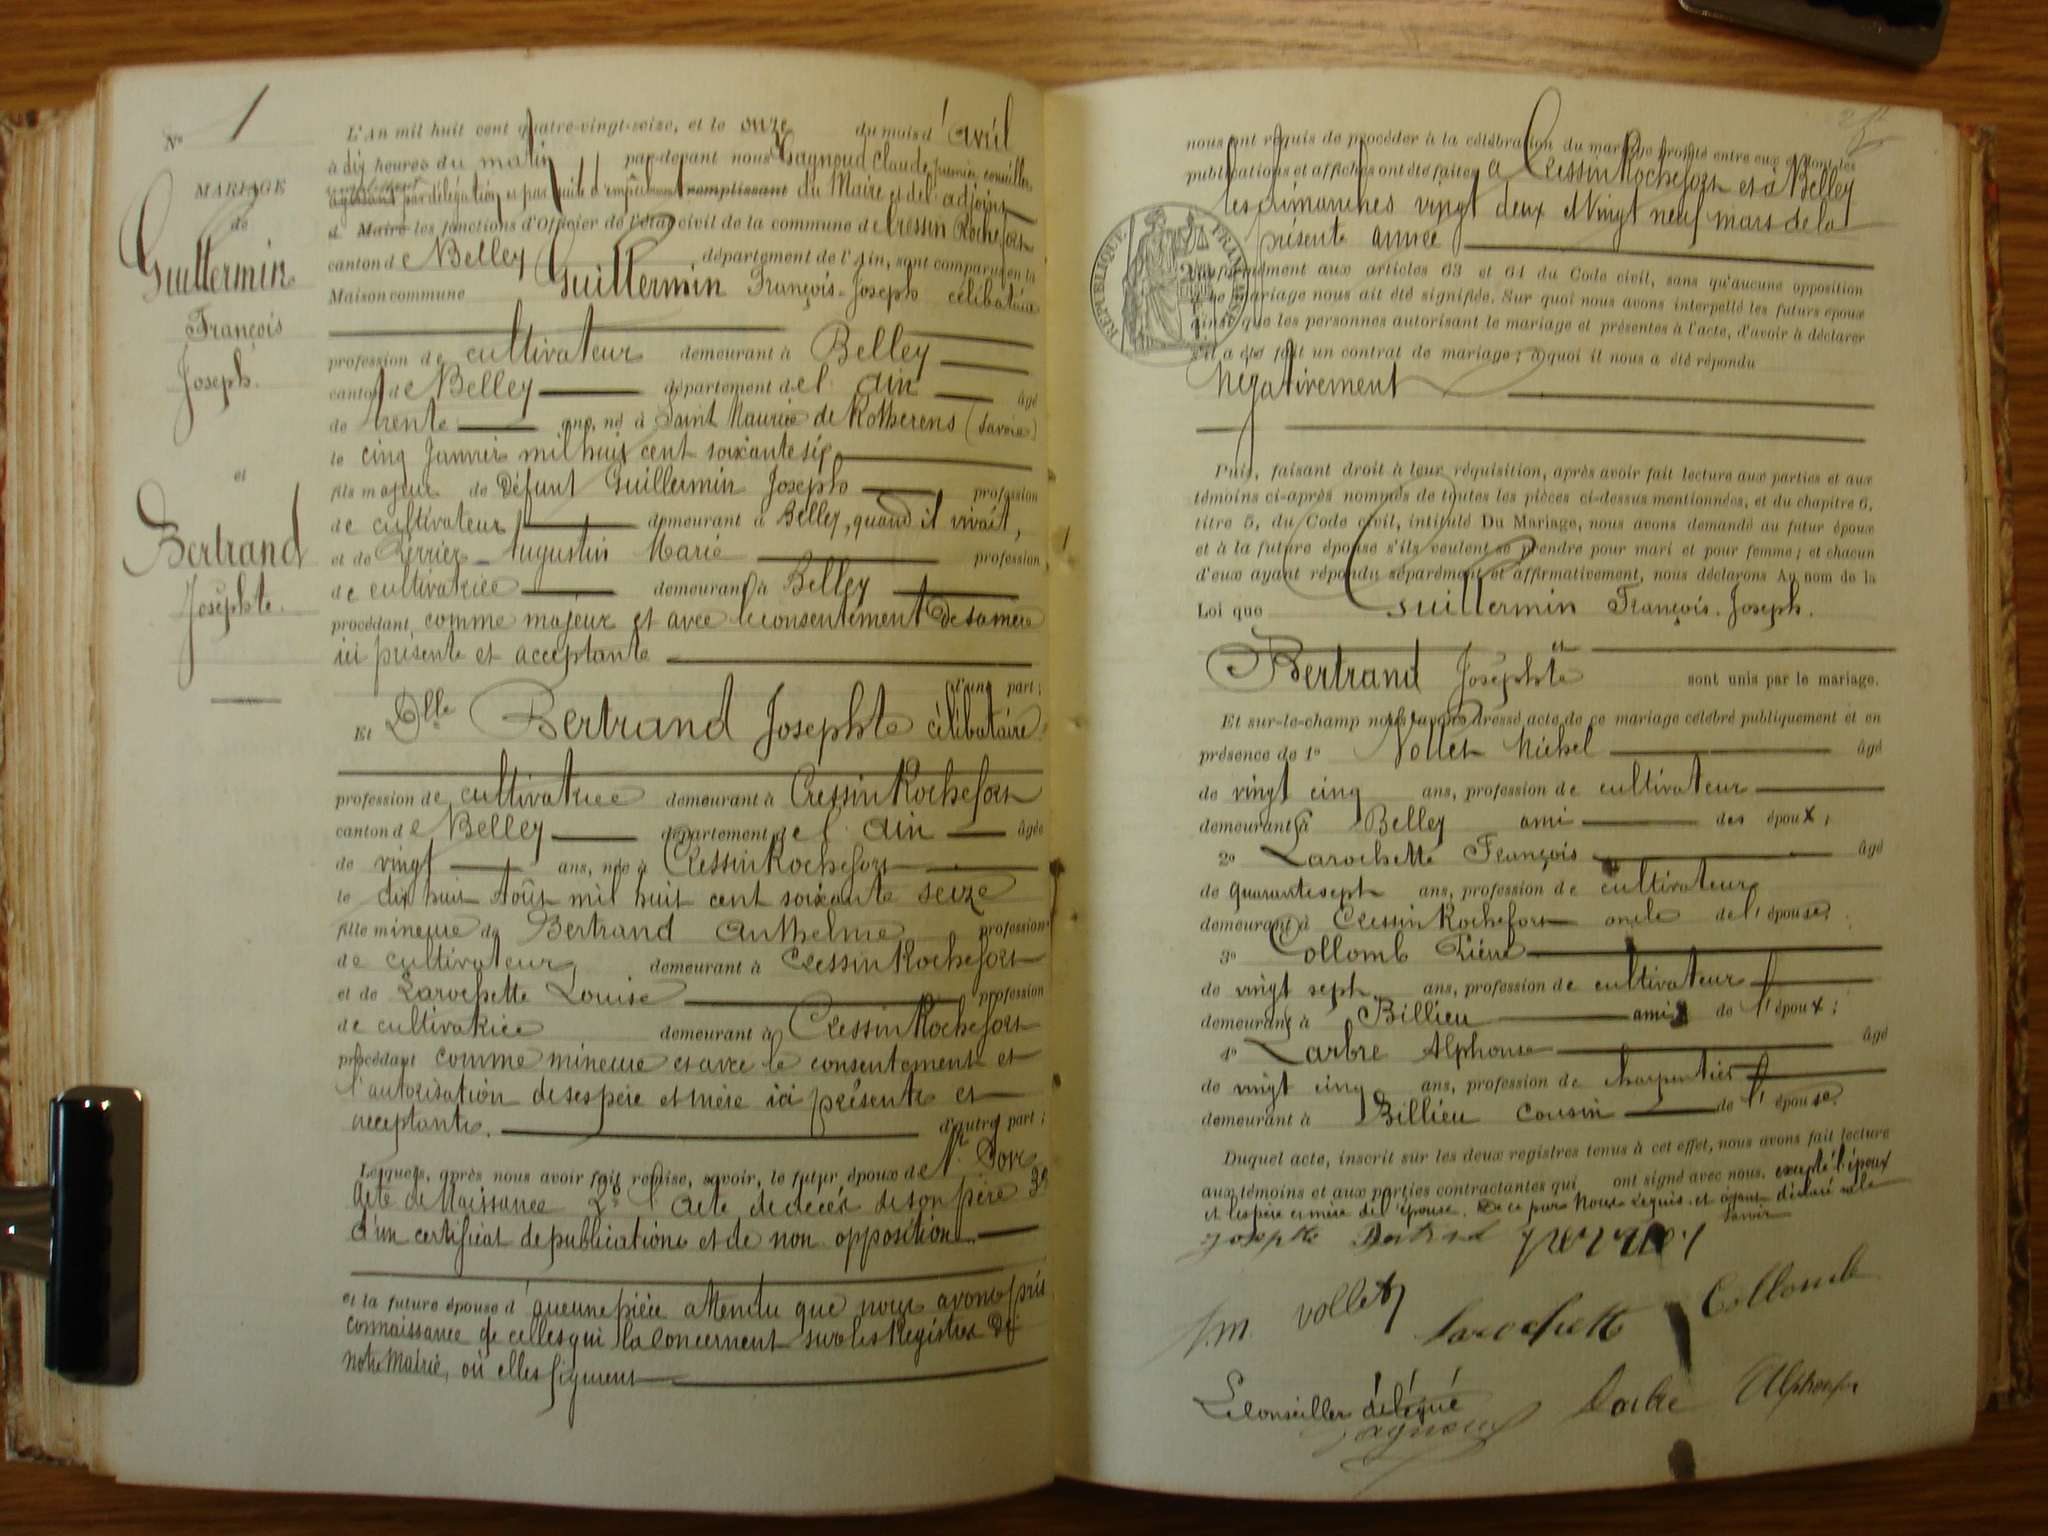 N° 1
MARIAGE
de
Guillermin
François
Joseph.
et
Bertrand
Josephte.
L'An mil huit cent quatre-vingt-seize, et le onze du mois d'avril
à dix heures du matin par-devant nous Gagnoud Claude, premier conseiller
agissant par délégation et par suite d'empêchement remplissant du Maire et de l'adjoint
d Maire les fonctions d'Officier de l'état civil de la commune de Cressin Rochefort
canton de Belley département de l'Ain, sont comparus en la
Maison commune Guillermin François-Joseph célibataire
profession de cultivateur demeurant à Belley
canton de Belley département de l'ain âgé
de trente ans, né à Saint Maurice de Rotherens (Savoie)
le cinq Janvier mil huit cent soixante six
fils majeur de Défunt Guillermin Joseph profession
de cultivateur demeurant à Belley, quand il vivait,
et de Perrier Augustin Marie profession
de cultivatrice demeurant à Belley
procédant comme majeur et avec le consentement de sa mère
ici présente et acceptante
d'une part;
Et Dlle Bertrand Josephte célibataire
profession de cultivatrice demeurant à Cressin Rochefort
canton de Belley département de l'ain âgée
de vingt ans, née à Cressin Rochefort
le dix huit Août mil huit cent soixante seize
fille mineure de Bertrand Anthelme profession
de cultivateur, demeurant à Cressin Rochefort
et de Larochette Louise profession
de cultivatrice demeurant à Cressin Rochefort
procédant comme mineure et avec le consentement et
l'autorisation de ses père et mère ici présents et
acceptants. d'autre part;
Lesquels, après nous avoir fait remise, savoir, le futur époux de 1° son
acte de Naissance 2° l'acte de décès de son père 3°
d'un certificat de publications et de non opposition
et la future épouse d'aucune pièce attendu que nous avons pris
connaissance de celles qui la concernent sur les Registres de
notre Mairie, où elles figurent
nous ont requis de procéder à la célébration du mariage projeté entre eux et dont les
publications et affiches ont été faites à Cressin Rochefort et à Belley
les dimanches vingt deux et vingt neuf mars de la
présente année
RÉPUBLIQUE FRANÇAISE
conformément aux articles 63 et 64 du Code civil, sans qu'aucune opposition
à ce mariage nous ait été signifiée. Sur quoi nous avons interpellé les futurs époux
ainsi que les personnes autorisant le mariage et présentes à l'acte, d'avoir à déclarer
s'il a été fait un contrat de mariage; à quoi il nous a été répondu
négativement
Puis, faisant droit à leur réquisition, après avoir fait lecture aux parties et aux
témoins ci-après nommés de toutes les pièces ci-dessus mentionnées, et du chapitre 6,
titre 5, du Code civil, intitulé Du Mariage, nous avons demandé au futur époux
et à la future épouse s'ils veulent se prendre pour mari et pour femme; et chacun
d'eux ayant répondu séparément et affirmativement, nous déclarons Au nom de la
Loi que Guillermin François-Joseph.
et
Bertrand Josephte sont unis par le mariage.
Et sur-le-champ nous avons dressé acte de ce mariage célébré publiquement et en
présence de 1° Vollet Michel âgé
de vingt cinq ans, profession de cultivateur
demeurant à Belley ami des époux;
2° Larochette François âgé
de quarante sept ans, profession de cultivateur
demeurant à Cressin Rochefort oncle de l'épouse.
3° Collomb Pierre
de vingt sept ans, profession de cultivateur
demeurant à Billieu ami de l'époux;
4° Larbre Alphonse âgé
de vingt cinq ans, profession de charpentier
demeurant à Billieu cousin de l'épouse.
Duquel acte, inscrit sur les deux registres tenus à cet effet, nous avons fait lecture
aux témoins et aux parties contractantes qui ont signé avec nous, excepté l'époux
et les père et mère de l'épouse. De ce par Nous requis et ayant déclaré ne le
savoir
Josephte Bertrand perrier
m. vollet Larochette Collomb
Le Conseiller délégué Larbre Alphonse
Gagnoud